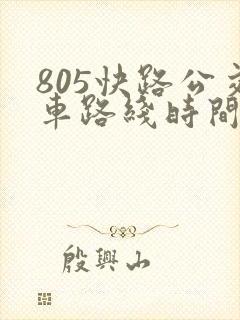 805快路公交
車路綫時間
殷興山